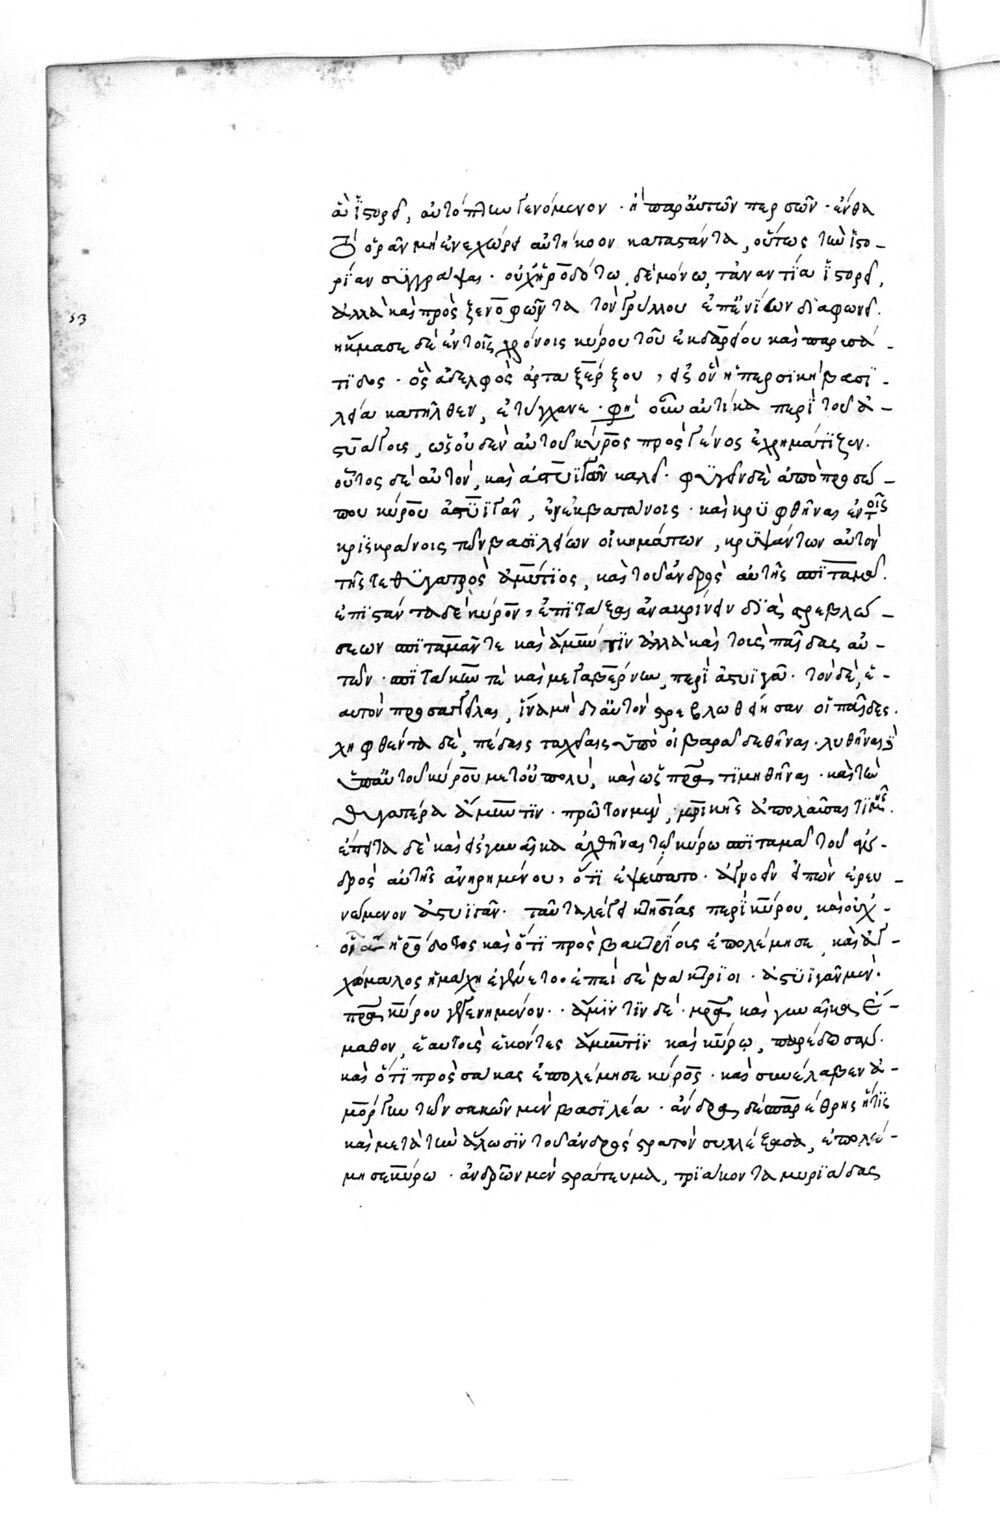 ἃ ἱστορεῖ, αὐτόπτην γενόμενον · ἢ παρ' αὐτῶν περσῶν · ἔνθα
τὸ ὁρᾶν μὴ ἐνεχώρει αὐτήκοον καταστάντα, οὕτως τὴν ἱστο-
ρίαν συγγράψαι · οὐχ ἡροδότω δὲ μόνω τἀναντία ἱστορεῖ,
ἀλλὰ καὶ πρὸς ξενοφῶντα τὸν γρύλλου ἐπ' ἐνίων διαφωνεῖ.
ἤκμασε δὲ ἐν τοῖς χρόνοις κύρου τοῦ ἐκ δαρείου καὶ παρισά-
τιδος · ὃς ἀδελφὸς ἀρταξέρξου, εἰς ὃν ἡ περσικὴ βασι-
λεία κατῆλθεν, ἐτύγχανε · φησὶν οὖν αὐτίκα περὶ τοῦ ἀ-
στυάγους, ὡς οὐδὲν αὐτοῦ κύρος πρὸς γένος ἐχρημάτιζεν.
οὗτος δὲ αὐτὸν καὶ ἀστυϊγαν καλεῖ · φυγεῖν δὲ ἀπὸ προσώ-
που κύρου ἀστυϊγαν, ἐν ἐκβατάνοις · καὶ κρυφθῆναι ἐν τοῖς
κριοκράνοις τῶν βασιλείων οἰκημάτων, κρυψάντων αὐτὸν
τῆς τε θυγατρὸς ἀμύτιος, καὶ τοῦ ἀνδρὸς αὐτῆς σπιτάμα.
ἐπιστάντα δὲ κύρον, ἐπιτάξαι ἀνακρίνειν διὰ στρεβλώ-
σεων σπιτάμαν τε καὶ ἀμύτιν ἀλλὰ καὶ τοὺς παῖδας αὐ-
τῶν · σπιτάκην τὲ καὶ μεγαβέρνην, περὶ ἀστυϊγα · τὸν δὲ, ἑ-
αυτὸν προσαγγεῖλαι, ἵνα μὴ δι' αὐτὸν στρεβλωθείησαν οἱ παῖδες.
ληφθέντα δὲ, πέδαις παχείαις ὑπὸ οἰβάρα δεθῆναι · λυθῆναι δὲ
ὑπ' αὐτοῦ κύρου μετ' οὐ πολὺ, καὶ ὡς πατέρα τιμηθῆναι · καὶ τὴν
θυγατέρα ἀμύτιν · πρῶτον μὲν, μητρικῆς ἀπολαῦσαι τιμῆς.
ἔπειτα δὲ καὶ εἰς γυναῖκα ἀχθῆναι τῶ κύρω σπιτάμα τοῦ ἀν-
δρὸς αὐτῆς ἀνηρημένου, ὅτι ἐψεύσατο · ἀγνοεῖν εἰπὼν ἐρευ-
νώμενον ἀστυϊγαν · ταῦτα λέγει κτησίας περὶ κύρου, καὶ οὐχ
οἷα ἡρόδοτος καὶ ὅτι πρὸς βακτρίους ἐπολέμησε, καὶ ἀγ-
χώμαλος ἡ μάχη ἐγένετο · ἐπεὶ δὲ βάκτριοι · ἀστυϊγαν μὲν
πατέρα κύρου γεγενημένον · ἀμύτιν δὲ · μητέρα καὶ γυναῖκα ἔ-
μαθον, ἑαυτοὺς ἑκόντες ἀμύτιν καὶ κύρῳ, παρέδωσαν.
καὶ ὅτι πρὸς σάκας ἐπολέμησε κύρος · καὶ συνέλαβεν ἀ-
μόργην τῶν σακῶν μὲν βασιλέα · ἄνδρα δὲ σπαρέθρης ἥτις
καὶ μετὰ τὴν ἅλωσιν τοῦ ἀνδρὸς στρατὸν συλλέξασα, ἐπολέ-
μησε κύρω · ἀνδρῶν μὲν στράτευμα, τριάκοντα μυριάδας